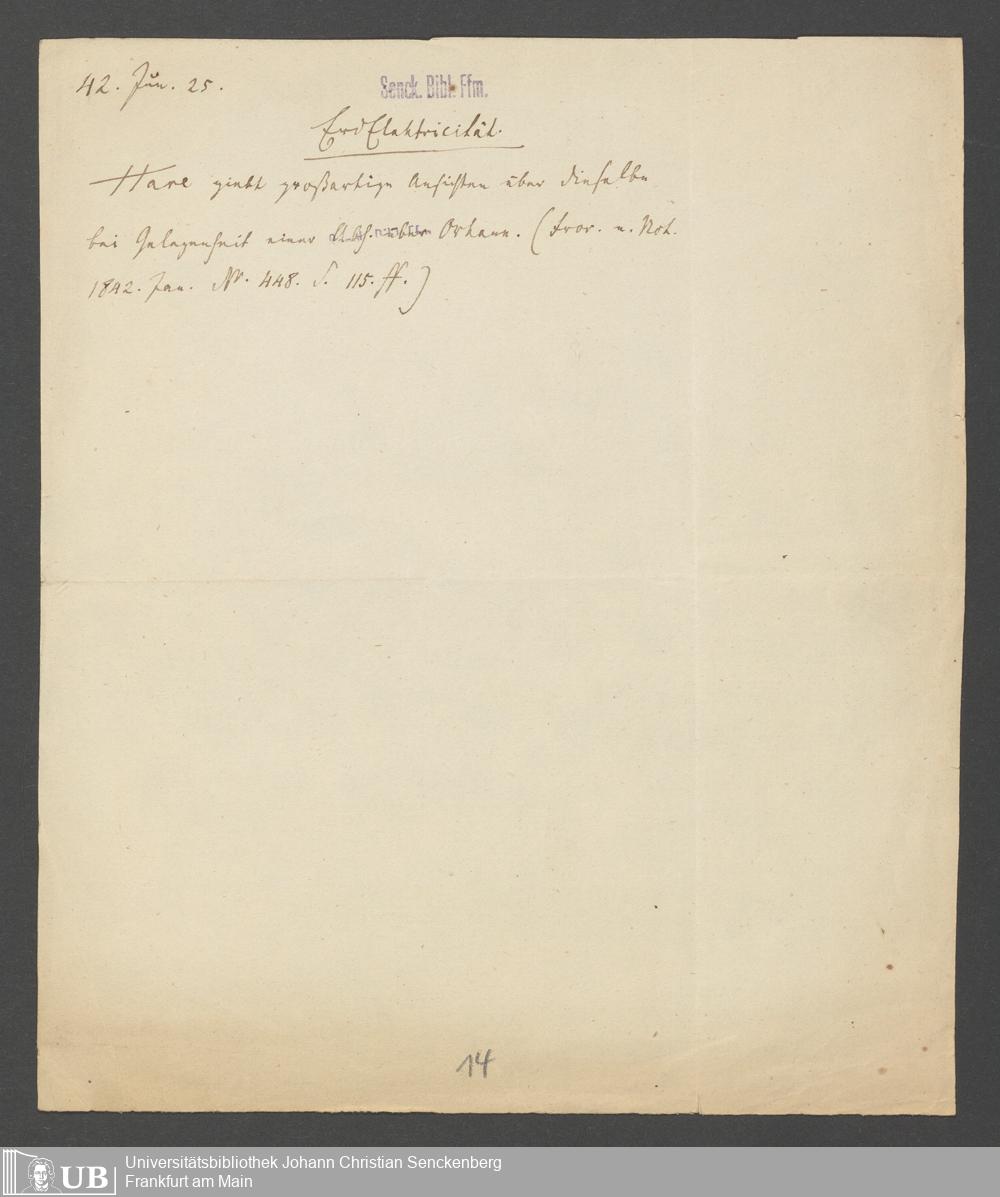 42. Jun. 25.
Senck. Bibl. Ffm.
ErdElektricität.
Hare giebt großartige Ansichten über dieselbe
bei Gelegenheit einer Abh. über Orkane. (Fror. n. Not.
1842. Jan. Nr. 448. S. 115. ff.)
14
UB
Universitätsbibliothek Johann Christian Senckenberg
Frankfurt am Main